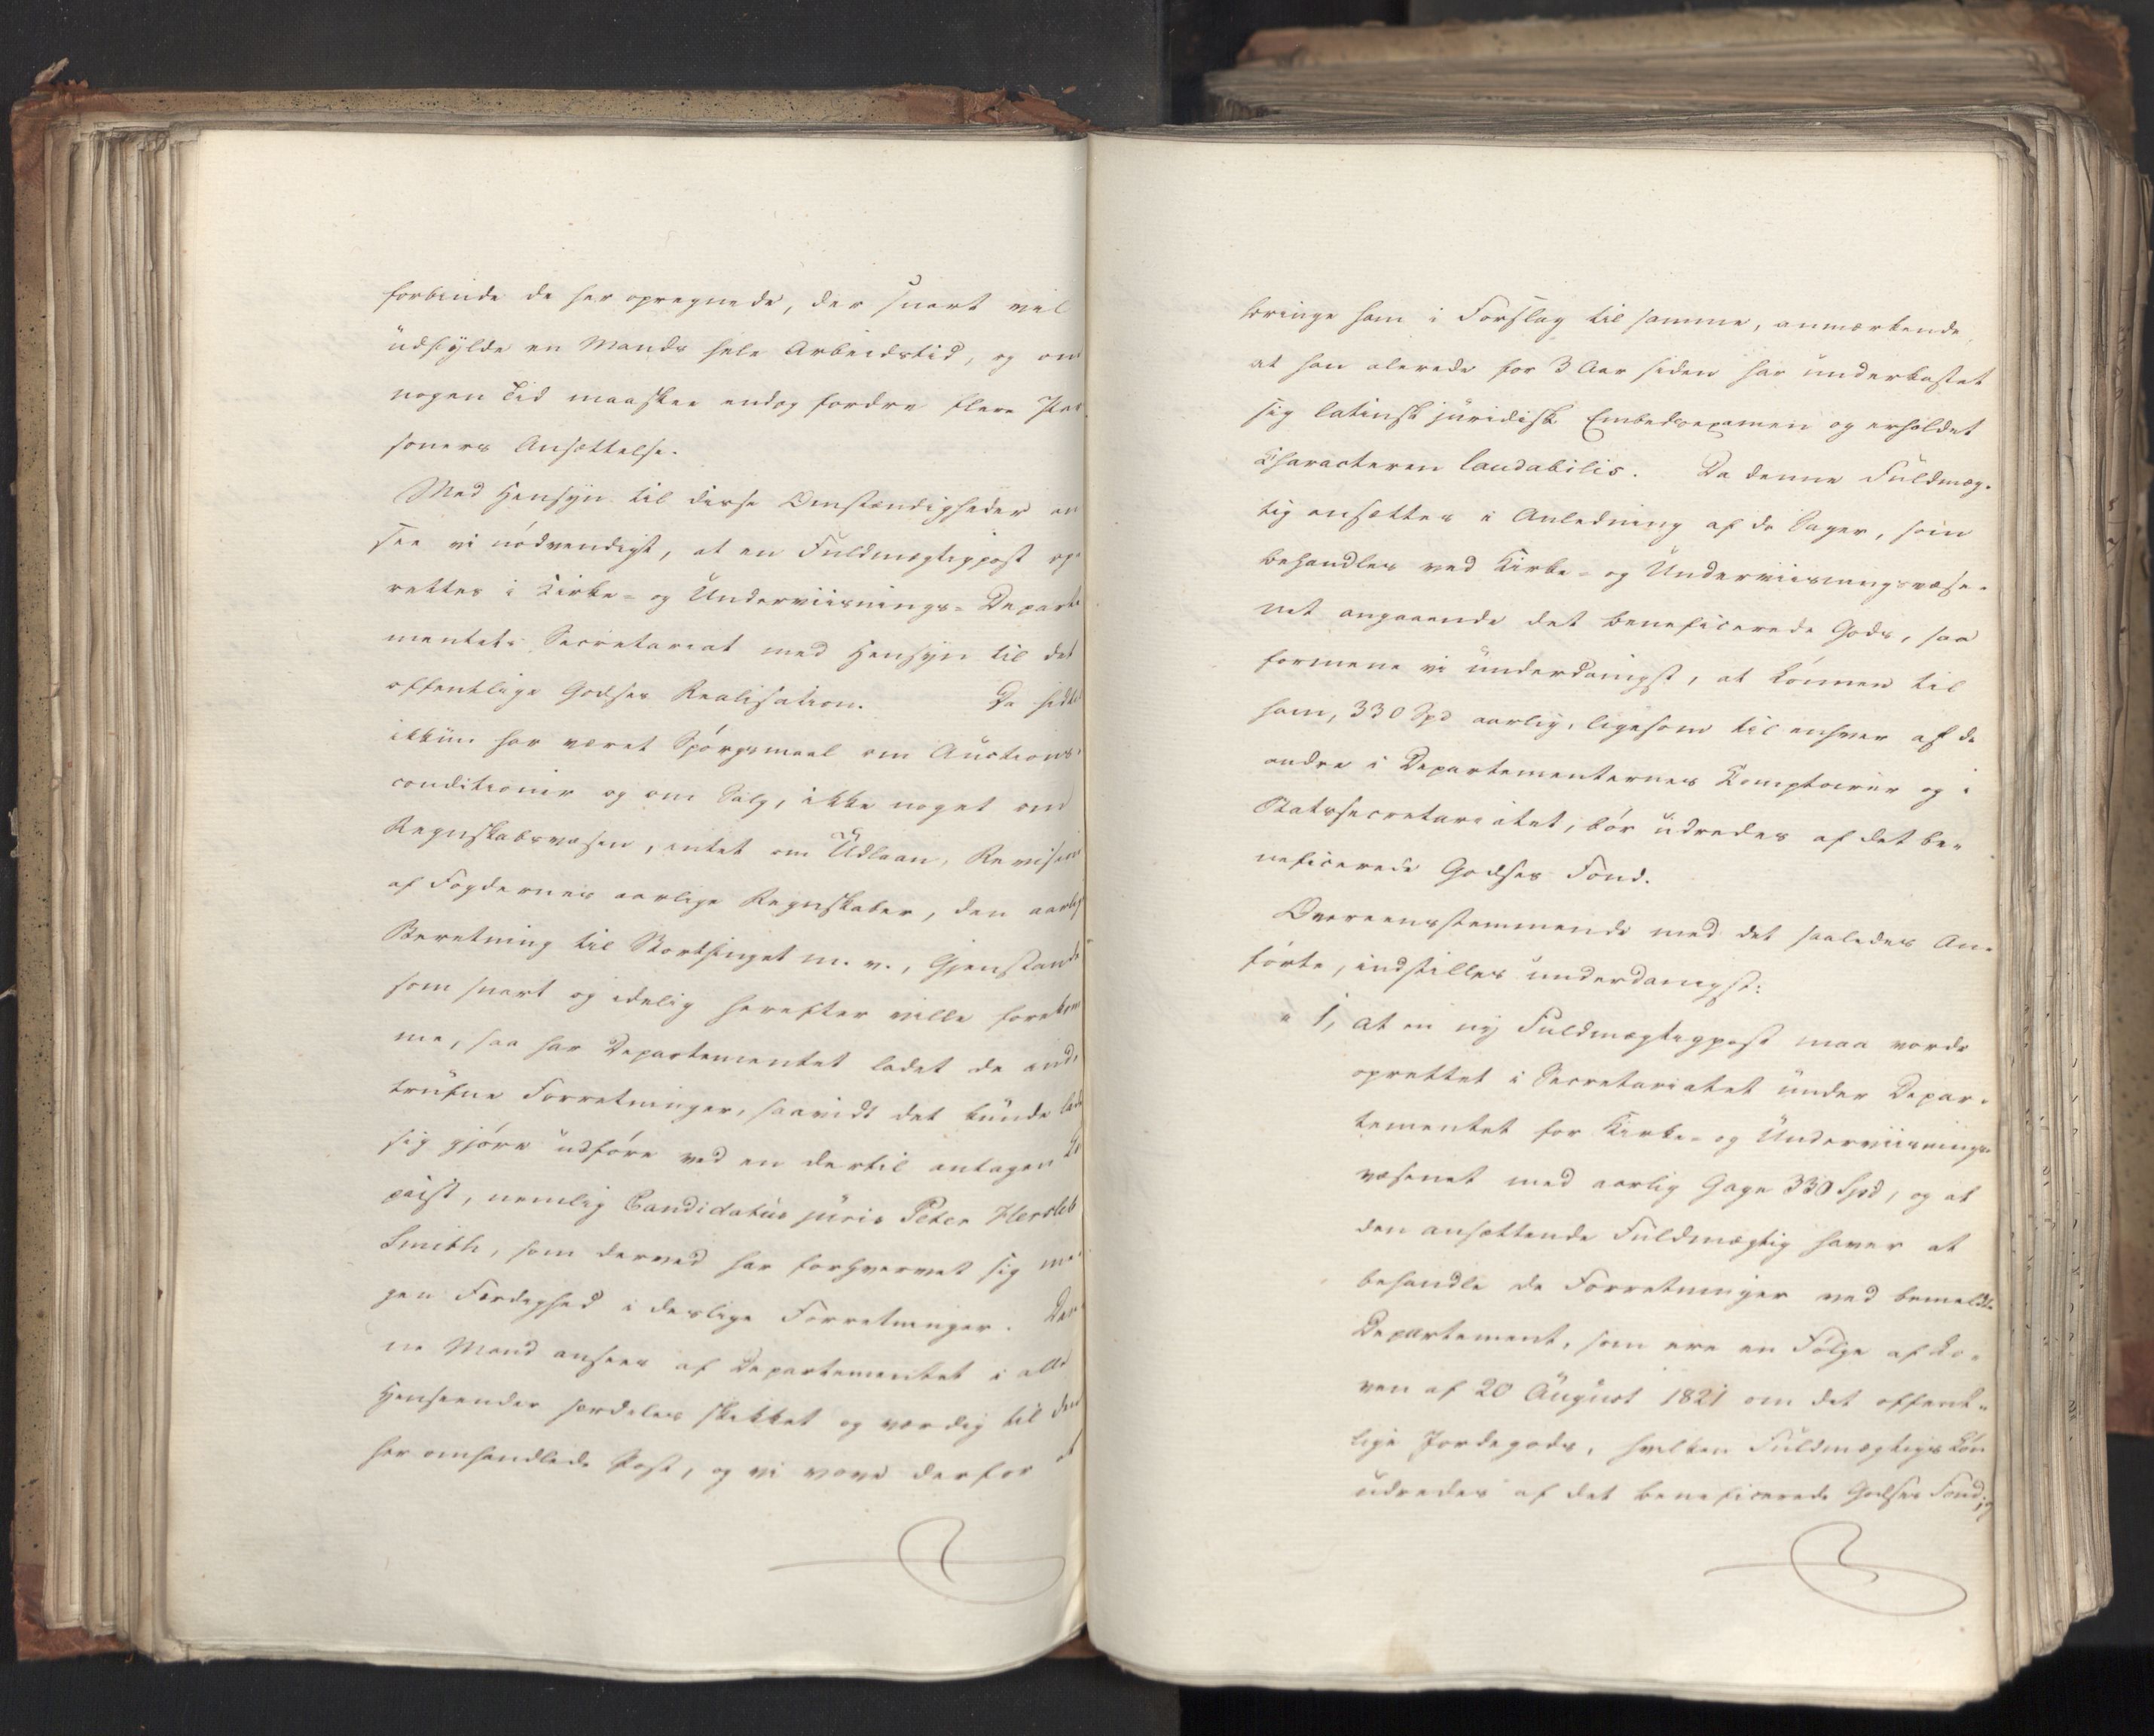 forbinde de her opregnede, der snart vil
udfylde en Mands hele Arbeidstid, og om
nogen Tid maaskee endog fordre flere Per-
soners Ansættelse.
Med Hensyn til disse Omstændigheder an
see vi nödvendigt, at en Fuldmægtigpost op-
rettes i Kirke- og Underviisnings-Departe
mentets Secretariat med Hensyn til det
offentlige Godses Realisation. Da hidtil
ikkun har været Spörgsmaal om Auctions-
conditioner og om Salg, ikke noget om
Regnskabsvæsen, intet om Udlaan, Revision
af Fogdernes aarlige Regnskaber, den aarlig
Beretning til Storthinget m. v., Gjenstande
som snart og idelig herefter ville forekom
me, saa har Departementet ladet de ind-
trufne Forretninger, saavidt det kunde lade
sig gjöre udföre ved en dertil antagen Co
piist, nemlig Candidatus juris Peter Hersleb
Smith, som derved har forhvervet sig me
gen Færdighed i deslige Forretninger. Den
ne Mand ansees af Departementet i alle
Henseender særdeles skikket og værdig til den
her omhandlede Post, og vi vove derfor at
bringe ham i Forslag til samme, anmærkende,
at han alerede for 3 Aar siden har underkastet
sig latinsk juridisk Embedsexamen og erholdet
Characteren laudabilis. Da denne Fuldmæg-
tig ansættes i Anledning af de Sager, som
behandles ved Kirke- og Underviisningsvæse-
net angaaende det beneficerede Gods, saa
formene vi underdanigst, at Lönnen til
ham, 330 Spd aarlig, ligesom til enhver af de
andre i Departementernes Comptoirer og i
Statssecretariatet, bör udredes af det be-
neficerede Godses Fond.
Overeensstemmende med det saaledes An-
förte, indstilles underdanigst:
" 1, at en ny Fuldmægtigpost maa vorde
oprettet i Secretariatet under Depar-
tementet for Kirke- og Underviisnings-
væsenet med aarlig Gage 330 Spd, og at
den ansættende Fuldmægtig haver at
behandle de Forretninger ved bemeldte
Departement, som ere en Fölge af Lo-
ven af 20 August 1821 om det offent-
lige Jordegods, hvilken Fuldmægtigs Lön
udredes af det beneficerede Godses Fond;